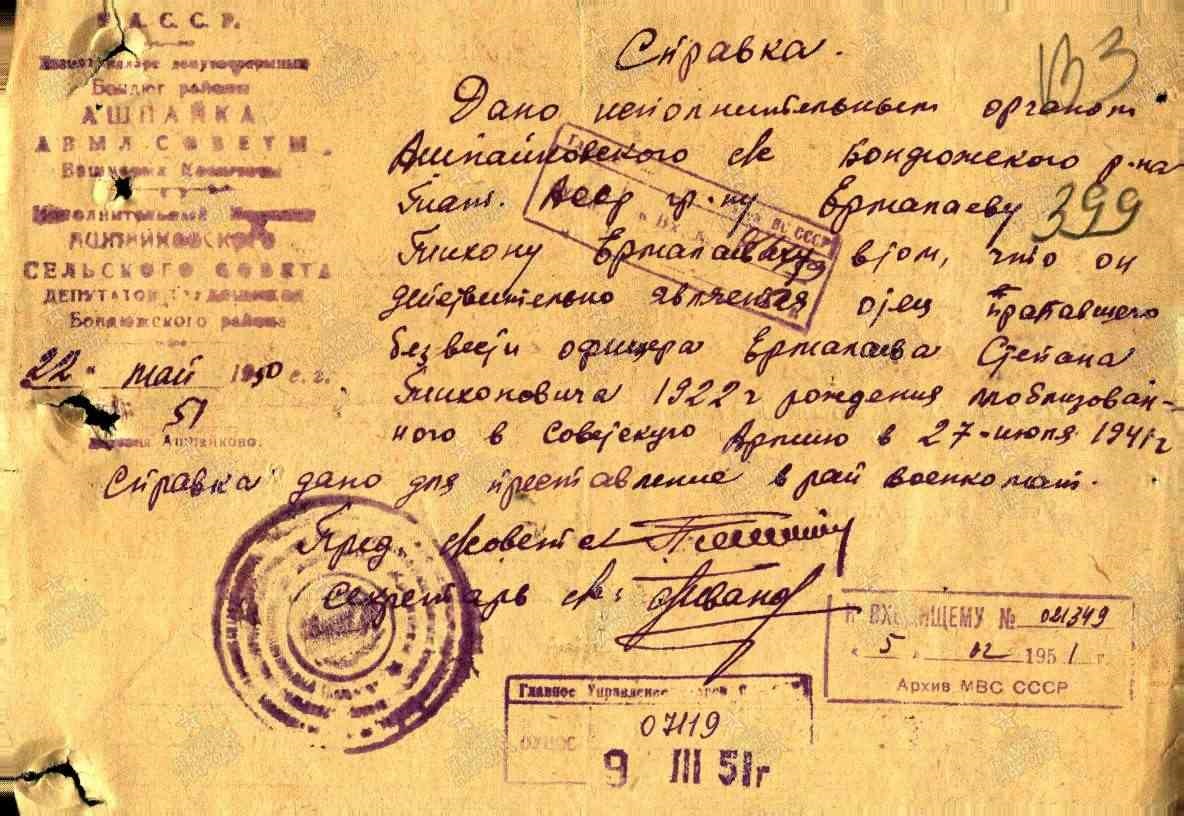 Т. А. С. С. Р.
Бондюг районы
АШПАЙКА
АВЫЛ СОВЕТЫ
Исполнительный
СЕЛЬСКОГО СОВЕТА
ДЕПУТАТОВ
Бондюжского района
22 " май 1950 с. г.
51
Ашпайково.
Справка.
133
Дано исполнительным органом
Ашпайковского с/с Бондюжского р-на
Тат. АССР гр-ну Ермалаеву
399
Тихону Ермалаевичу в том, что он
действительно является отец прапавшего
без вести офицера Ермалаева Степана
Тихоновича 1922 г рождения моблизован-
ного в Советскую Армию в 27-июля 1941 г
Справка дано для преставление в рай военкомат.
Пред. совета
Секретарь с/с: Иванов
К ВХОДЯЩЕМУ № 021349
" 5 " 02 1951 г.
Архив МВС СССР
Главное Управление
07119
9 III 51г